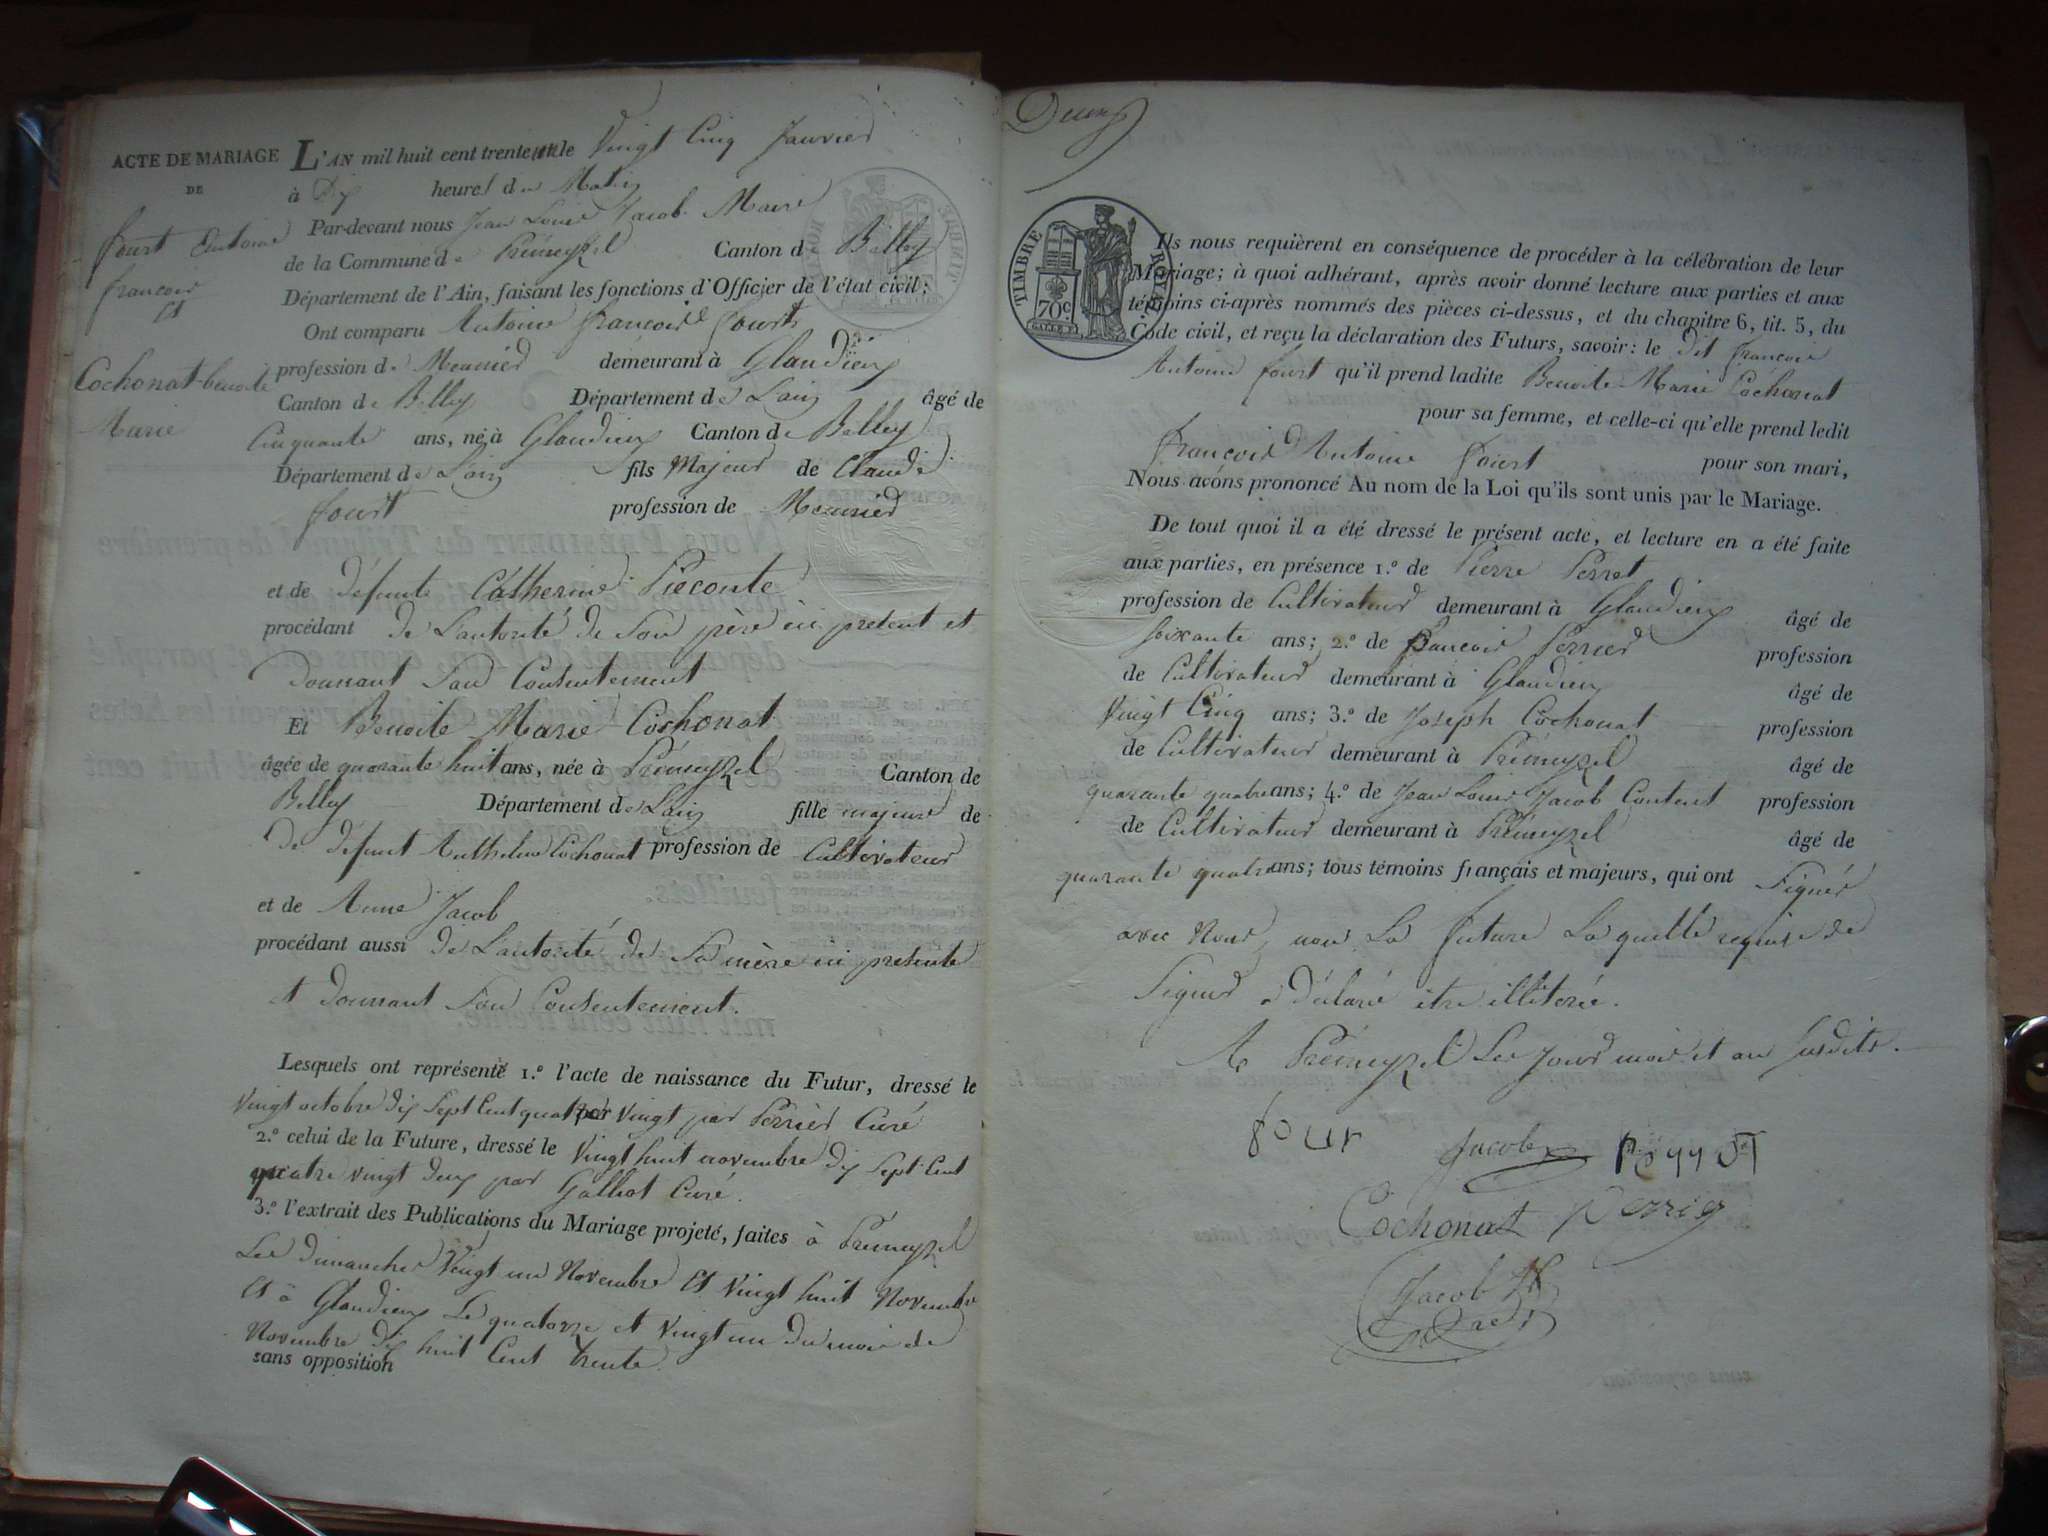 ACTE DE MARIAGE
DE
fourt Antoine
francois
Et
Cochonat benoite
Marie
L'AN mil huit cent trente un le Vingt Cinq Janvier
à Dix heures du Matin
Par-devant nous Jean Louis Jacob Maire
de la Commune de Prémeyzel Canton de Belley
Département de l'Ain, faisant les fonctions d'Officier de l'état civil;
Ont comparu Antoine francois fourt
profession de Meunier demeurant à Glandieu
Canton de Belley Département de Lain âgé de
Cinquante ans, né à Glandieu Canton de Belley
Département de Lain fils Majeur de Claude
fourt profession de Meunier
et de défunte Catherine Piéconte
procédant de Lautorité de Son père ici présent et
Donnant Son Consentement
Et Benoite Marie Cochonat
âgée de quarante huit ans, née à Prémeyzel Canton de
Belley Département de Lain fille majeure de
De défunt Anthelme Cochonat profession de Cultivateur
et de Anne Jacob
procédant aussi de Lautorité de Sa mère ici présente
et Donnant Son Consentement.
Lesquels ont représenté 1.º l'acte de naissance du Futur, dressé le
Vingt octobre dix Sept Cent quatre Vingt par Perrier Curé
2.º celui de la Future, dressé le Vingt huit novembre dix Sept Cent
quatre vingt deux par Galliot Curé.
3.º l'extrait des Publications du Mariage projeté, faites à Prémeyzel
Les Dimanches Vingt un Novembre Et Vingt huit Novembre
Et à Glandieu Le quatorze et Vingt un du mois de
Novembre dix huit Cent trente.
sans opposition
Deux
TIMBRE ROYAL
70 c.
Ils nous requièrent en conséquence de procéder à la célébration de leur
Mariage; à quoi adhérant, après avoir donné lecture aux parties et aux
témoins ci-après nommés des pièces ci-dessus, et du chapitre 6, tit. 5, du
Code civil, et reçu la déclaration des Futurs, savoir: le dit francois
Antoine fourt qu'il prend ladite Benoite Marie Cochonat
pour sa femme, et celle-ci qu'elle prend ledit
francois Antoine fourt pour son mari,
Nous avons prononcé Au nom de la Loi qu'ils sont unis par le Mariage.
De tout quoi il a été dressé le présent acte, et lecture en a été faite
aux parties, en présence 1.º de Pierre Perret
profession de Cultivateur demeurant à Glandieu âgé de
Soixante ans; 2.º de francois Perrier profession
de Cultivateur demeurant à Glandieu âgé de
Vingt Cinq ans; 3.º de Joseph Cochonat profession
de Cultivateur demeurant à Prémeyzel âgé de
quarante quatre ans; 4.º de Jean Louis Jacob Contant profession
de Cultivateur demeurant à Prémeyzel âgé de
quarante quatre ans; tous témoins français et majeurs, qui ont Signés
avec Nous, non La future Laquelle requise de
Signer a déclaré être illitérée.
A Prémeyzel Les Jour mois et an Susdits.
four Jacob
Cochonat Perrie
Jacob